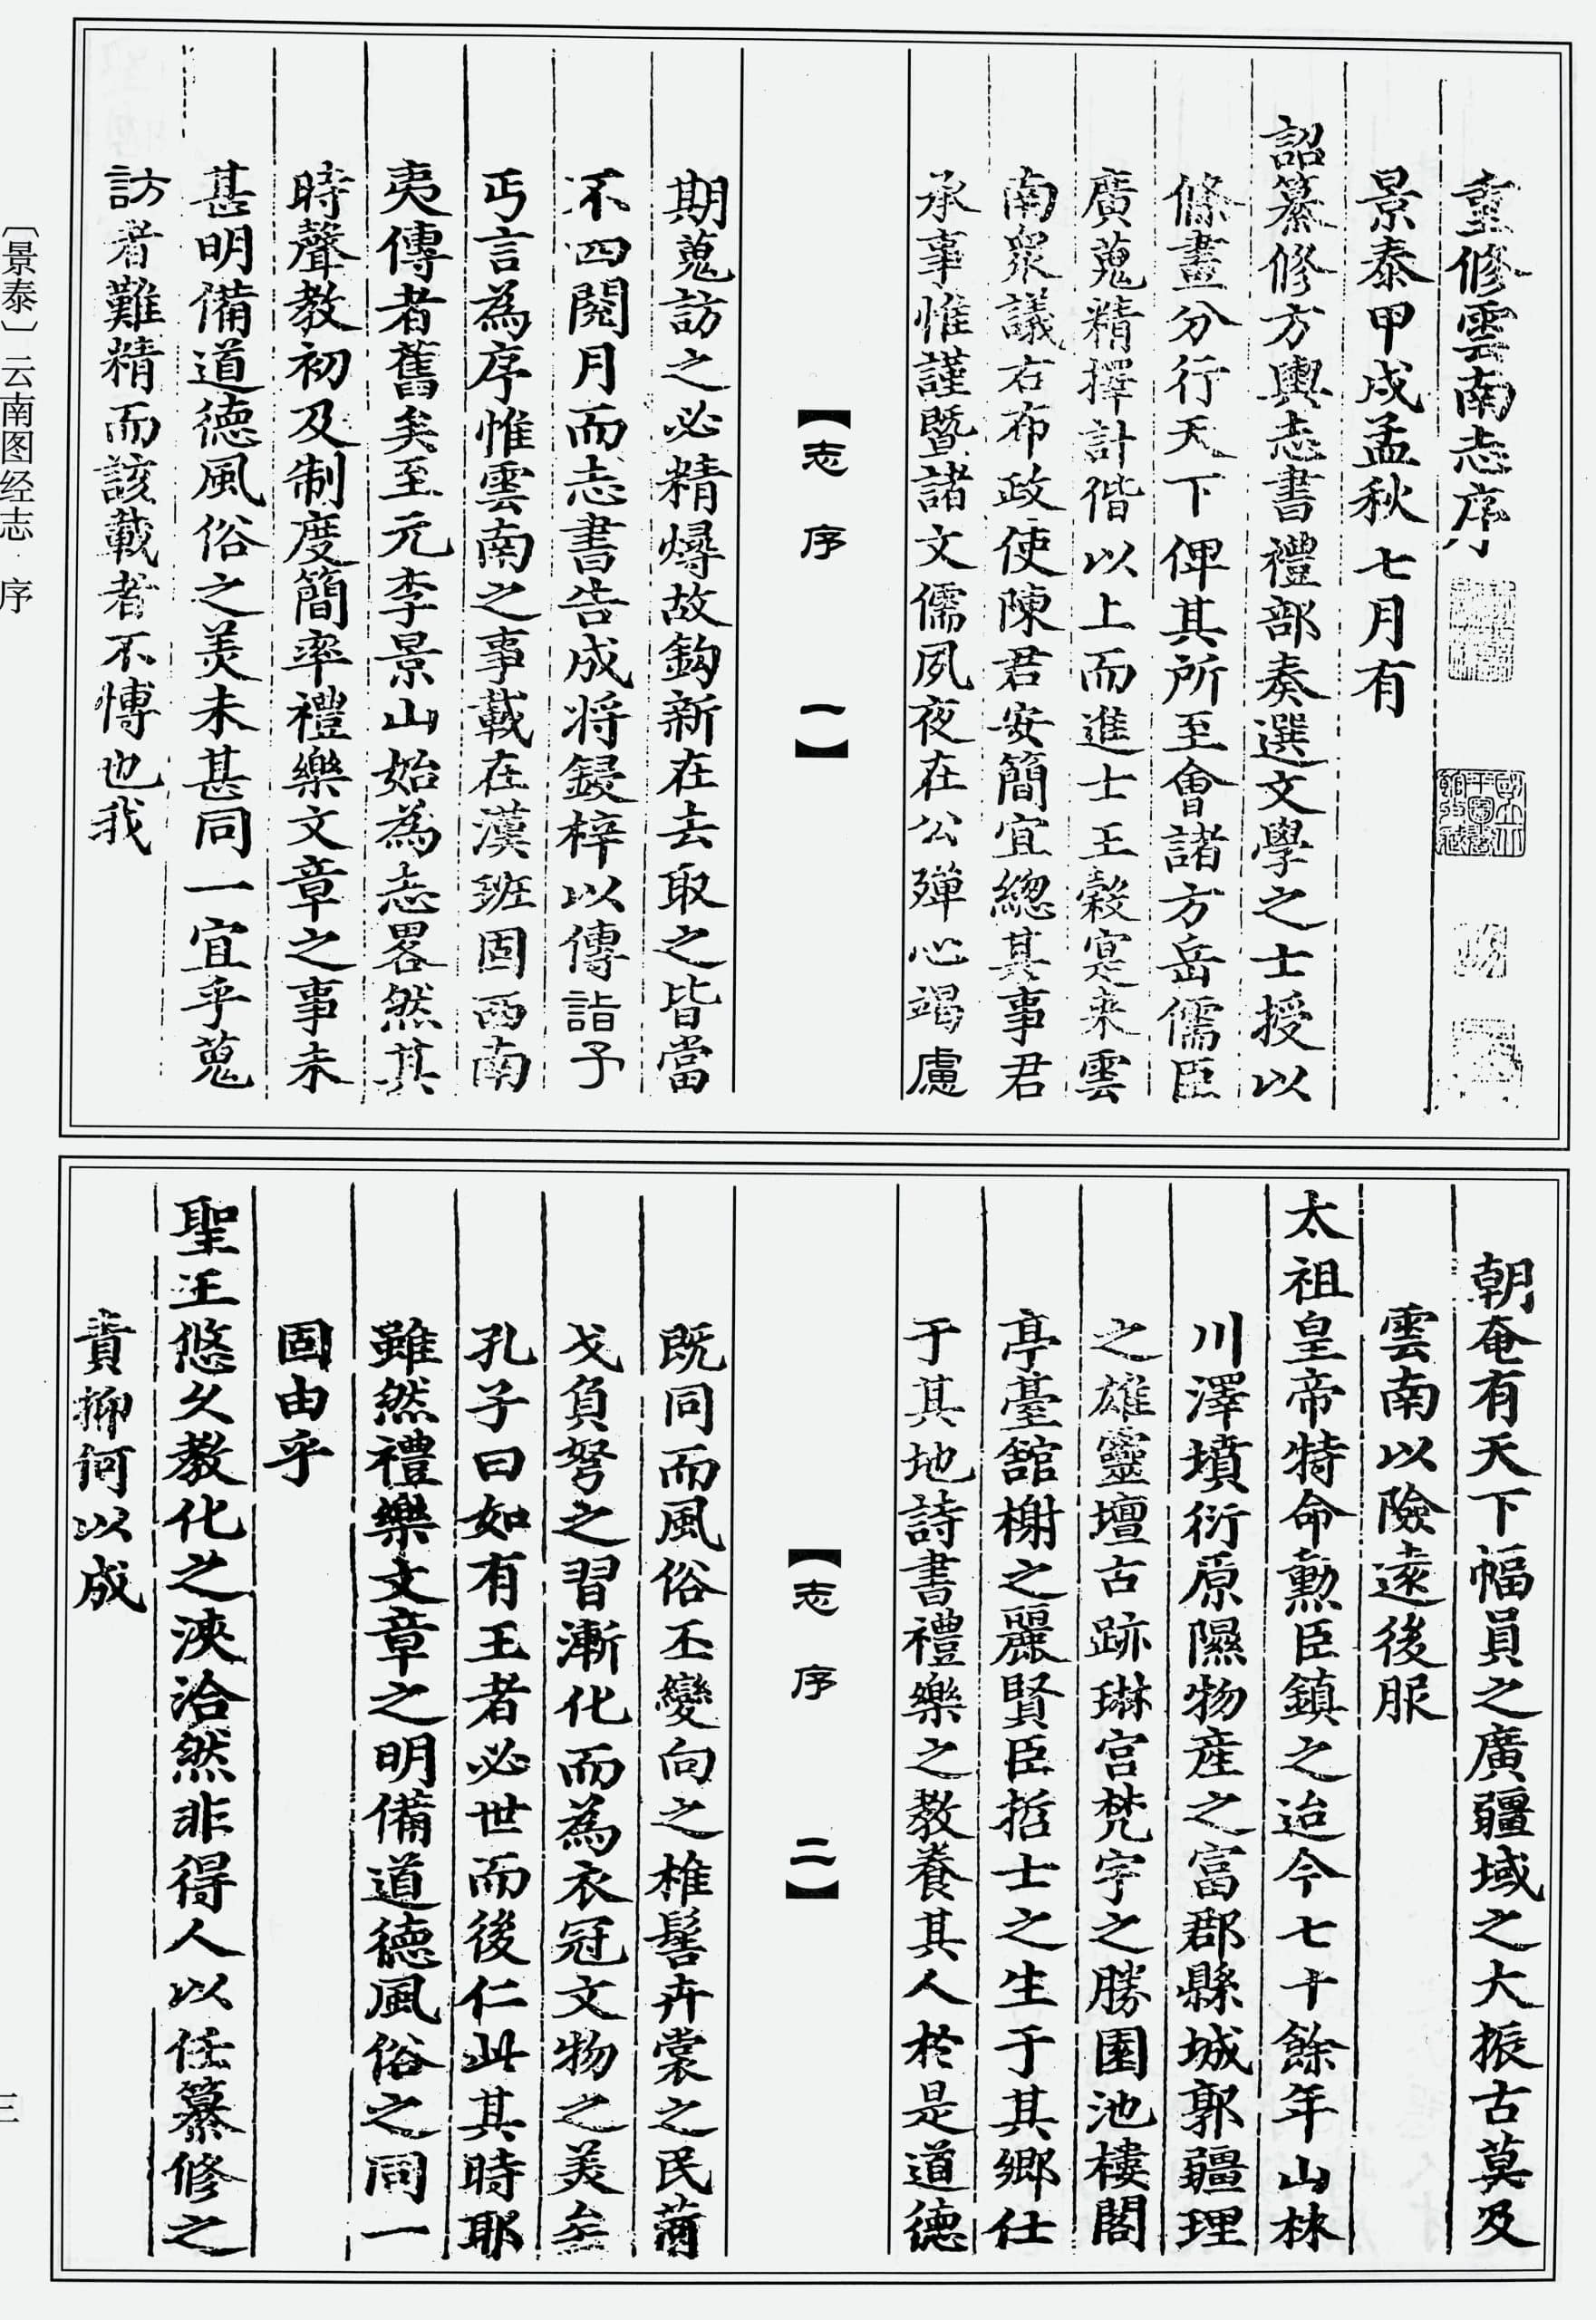 重修雲南志序
景泰甲戌孟秋七月有
詔纂修方輿志書禮部奏選文學之士授以
條畫分行天下俾其所至會諸方岳儒臣
廣蒐精擇計偕以上而進士王穀寔来雲
南衆議右布政使陳君安簡宜總其事君
承事惟謹暨諸文儒夙夜在公殫心竭慮
【志序 一】
期蒐訪之必精燖故鈎新在去取之皆當
不四閱月而志書告成将鋟梓以傳詣予
丐言為序惟雲南之事載在漢班固西南
夷傳者舊矣至元李景山始為志畧然其
時聲教初及制度簡率禮樂文章之事未
甚明備道德風俗之美未甚同一宜乎蒐
訪者難精而該載者不愽也我
朝奄有天下幅員之廣疆域之大振古莫及
雲南以險遠後服
太祖皇帝特命勲臣鎮之迨今七十餘年山林
川澤墳衍原隰物産之富郡縣城郭疆理
之雄靈壇古跡琳宫梵宇之勝園池樓閣
亭臺舘榭之麗賢臣哲士之生于其鄉仕
于其地詩書禮樂之教養其人於是道德
【志序 二】
既同而風俗丕變向之椎髻卉裳之民荷
戈負弩之習漸化而為衣冠文物之美矣
孔子曰如有王者必世而後仁此其時耶
雖然禮樂文章之明備道德風俗之同一
固由乎
聖王悠久教化之浹洽然非得人以任纂修之
責抑何以成
〔景泰〕云南图经志·序
三